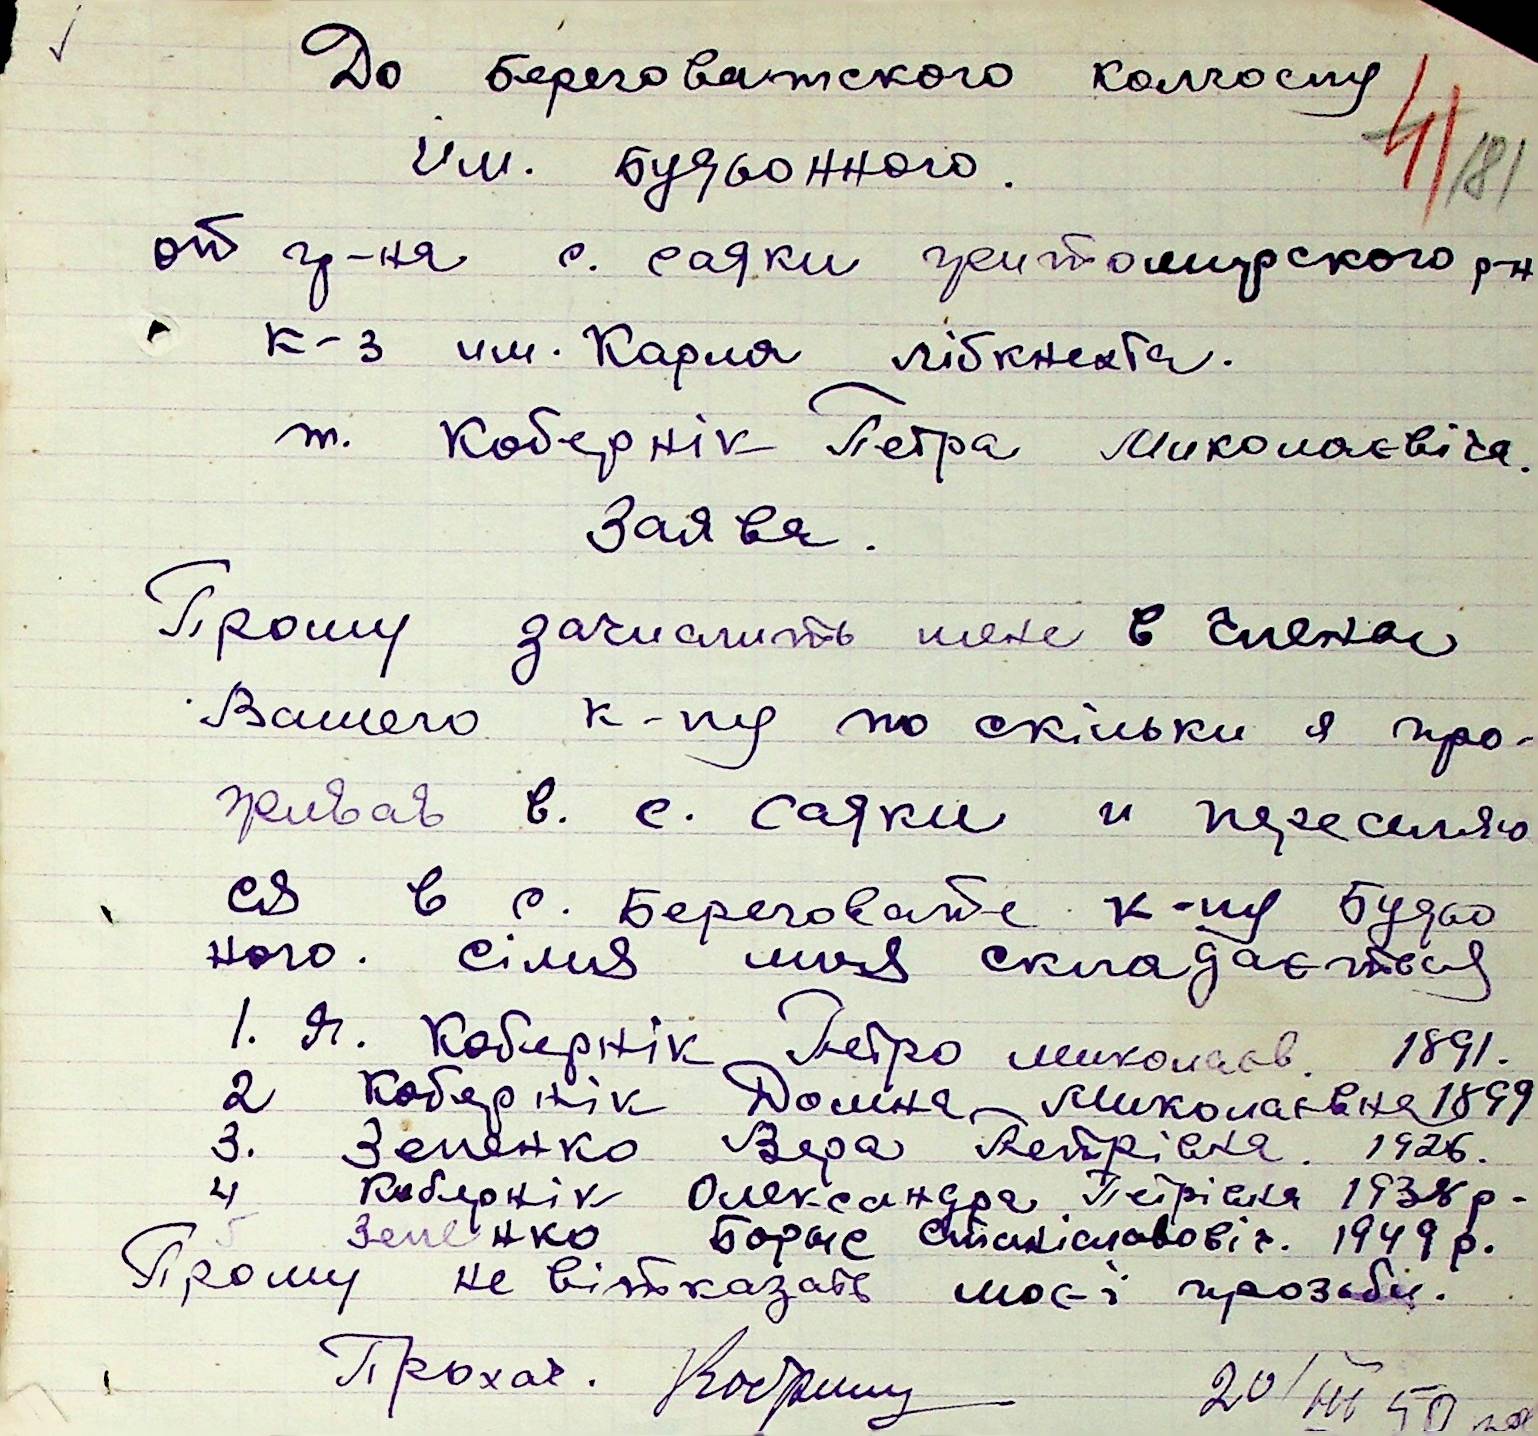 До Береговатского колгоспу
им. Будьонного.
от гр-на с. садки житомирского р-н
к-з им. Карла лібкнехта.
т. Кобернік Петра Миколаєвіча.
Заява.
Прошу зачислить мене в члены
Вашего к-пу по скільки я про-
живав в. с. садки и переселяю
ся в с. Береговате к-пу Будьо
ного. сімія моя складається
1. Я. Кобернік Петро миколаєв. 1891.
2 Кобернік Домна Миколаєвна 1899
3. Зепенко Вера Петрівна. 1926.
4 Кобернік Олександра Петрівна 1938 р-
5 Зепенко Борыс Станіславовіч. 1949 р.
Прошу не вітказать моєї прозьби.
Прохач.
20/III 50
41/181